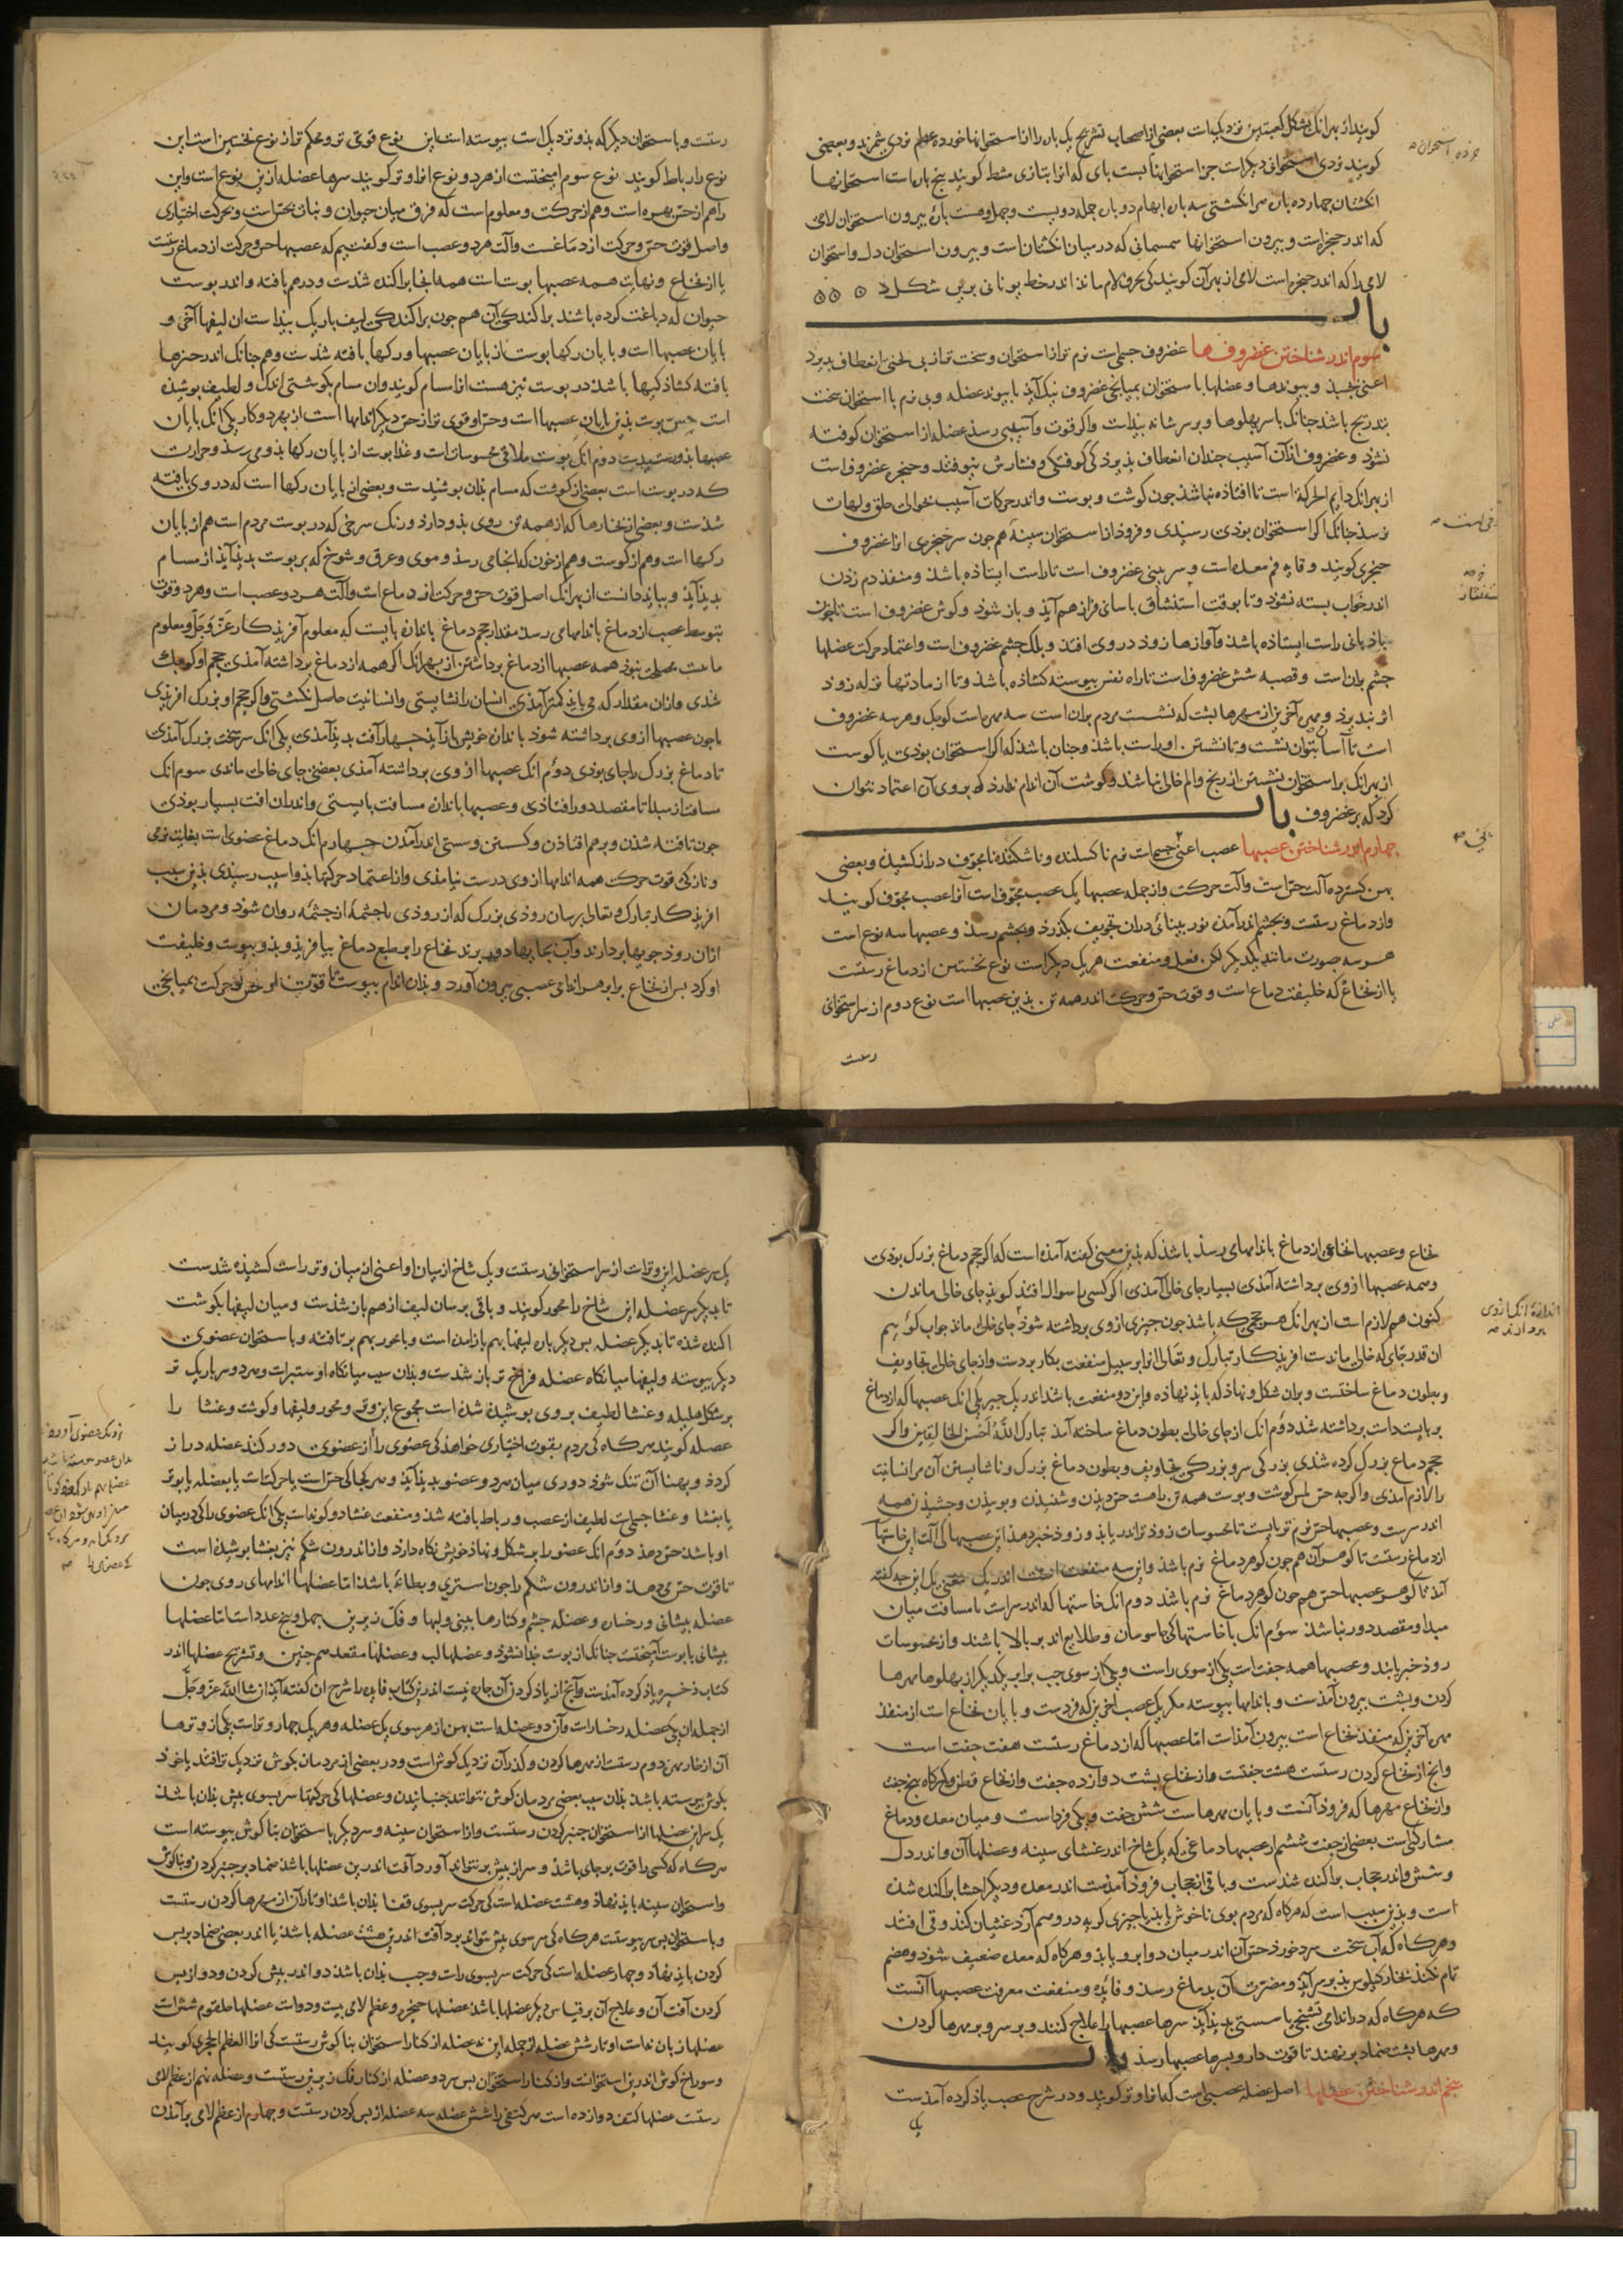 کویند از بهر انک بشکل کعبتین نزدیکست بعضی از اصحاب تشریح یک باره را از استخوانها خورده عظم نردی شمرند و بعضی
کویند نردی استخوانی دیکر است جز استخوانها کیست بای که انرا بتازی مشط کویند بنج باره است استخوانها
انکشتان جهارده باره هر انکشتی سه باره ابهام دو باره جمله دویست و جهل و هشت باره بیرون استخوان لامی
که اندر حنجره است و بیرون استخوانها سمسمانی که در میان انکشتان است و بیرون استخوان دل و استخوان
لامی را که اندر حنجره است لامی از بهر آن کویند کی بحرف لام ماند اندر خط یونانی برین شکل
باب
سوم اندر شناختن غضروفها غضروف جسمی است نرم تر از استخوان و سخت تر از بی لختی انعطاف بذیرد
اعنی بخسبد و بیوندها و عضلها با استخوان بمیانجی غضروف نیک آید تا بیوند عضله و بی نرم با استخوان سخت
بتدریج باشد جنانک بر سر بهلوها و بر سر شانه بیذاست و اکر قوت و آسیبی رسد عضله از استخوان کوفته
نشود و غضروف از آن آسیب جندان انعطاف بذیرد کی کوفتکی و فشارش نیوفتد و حنجره غضروف است
از بهر انک دایم الحرکة است تا افتاذه نباشذ جون کوشت و بوست و اندر حرکات آسیب بخوالی حلق و لهات
نرسد جنانک اکر استخوان بوذی رسیدی و فروذ از استخوان سینه هم جون سر خنجری از غضروف
خنجری کویند وقایه فم معده است و سر بینی غضروف است تا راست ایستاده باشد و منفذ دم زدن
اندر خواب بسته نشود و تا بوقت استنشاق باسانی فراز هم آید و باز شود و کوش غضروف است تا جون
باذبانی راست ایستاده باشد و آوازها زود در وی افتد و بلک جشم غضروف است و اعتماد حرکت عضلها
جشم بران است و قصبه شش غضروف است تا راه نفس بیوسته کشاده باشد و تا از مادتها نزله زود
اثر نبذیرد و مهره آخرین از مهرها بشت که نشست مردم بران است سه مهره است کوجک و هر سه غضروف
است تا آسان بتوان نشست و تا نشستن او راست باشد و جنان باشد که اکر استخوان بوذی یا کوشت
از بهر انک بر استخوان نشستن از رنج و الم خالی نباشد و کوشت آن اندام ندارد که بر وی آن اعتماد نتوان
کرد که بر غضروف باب
جهارم اندر شناختن عصبها عصب اعنی جسمی است نرم ناکسلنده و ناشکننده نامجوف دراز کشیذه و بعضی
بهن کسترده آلت حس است و آلت حرکت و از جمله عصبها یک عصب مجوف است آنرا عصب مجوف کویند
و از دماغ رستست و بجشم اندر آمده نور بینائی در آن تجویف بکذرد و بجشم رسد و عصبها سه نوع است
هر سه بصورت مانند یکدیکر لکن فعل و منفعت هر یک دیکر است نوع نخستین از دماغ رستست
یا از نخاع که خلیفت دماغ است و قوت حس و حرکت اندر همه تن بذین عصبها است نوع دوم از سر استخوان
رستست
رستست و با استخوان دیکر که بذو نزدیک است بیوسته است این نوع قوی تر و محکم تر از نوع نخستین است این
نوع را رباط کویند نوع سوم امیختست از هر دو نوع انرا وتر کویند سرها عضله از بن نوع است و این
را هم از حس بهره است و هم از حرکت و معلوم است که فرق میان حیوان و نبات بحس است و بحرکت اختیاری
و اصل قوت حس و حرکت از دماغست و آلت هر دو عصب است و کفتیم که عصبها حس و حرکت از دماغ رستست
یا از نخاع و نهایت همه عصبها بوست است همه ابنجا براکنده شدست و درهم بافته و اندر بوست
حیوان که دباغت کرده باشند براکندکی آن هم جون براکندکی لیف باریک بیداست ان لیفها آخر و
بایان عصبها است و با بایان رکها بوست از بایان عصبها و رکها بافته شدست و هم جنانک اندر جیزها
بافته کشاذکیها باشد در بوست نیز هست انرا مسام کویند وان مسام بکوشتی اندک و لطیف بوشیده
است حس بوست بذین بایان عصبها است و حس او قوی تر از حس دیکر اندامها است از بهر دو کار یکی انک بایان
عصبها بذو رسیدست دوم انک بوست ملاقی محسوسات است و غذا بوست از بایان رکها بذو می رسد و حرارت
که در بوست است بعضی از کوشت که مسام بذان بوشیدست و بعضی از بایان رکها است که در وی بافته
شدست و بعضی از بخارها که از همه تن روی بذو دارد و رنک سرخی که در بوست مردم است هم از بایان
رکها است و هم از کوشت و هم از خون که انجا می رسد و موی و عرق و شوخ که بر بوست بدید آید از مسام
بدید آید و بباید دانست از بهر انک اصل قوت حس و حرکت از دماغ است و آلت هر دو عصب است و هر دو قوت
بتوسط عصب از دماغ باندامها می رسد مقدار حجم دماغ باندازه بایست که معلوم آفریدکار عز و جل و معلوم
شدی و از آن مقدار که می باید کمتر آمذی انسان را نشایستی و انسانیت حاصل نکشتی و اکر حجم او بزرک افریدی
تا دماغ بزرک را جای بوذی دوم انک عصبها از وی برداشته آمذی بعضی جای خالی ماندی سوم انک
مسافت از مبدا تا مقصد دور افتاذی و عصبها باندازه مسافت بایستی و اندران افت بسیار بوذی
جون تافته شدن و برهم افتاذن و کسستن و سستی اندر آمدن جهارم انک دماغ عضوی است بغایت نرمی
و نازکی قوت حرکت همه اندامها از وی درست نیامذی و از اعتماد حرکتها بذو اسیب رسیدی بذین سبب
افریدکار تبارک و تعالی برسان روذی بزرک که از روذی یا جشمه از جشمه روان شود و مردمان
ازان روذ جویها بردارند و آب بجایها دور برند نخاع را بر طبع دماغ بیافرید و بذو بیوست و خلیفت
او کرد بس از نخاع برابر هر اندامی عصبی بیرون آورد و بذان اندام بیوست تا قوت حس و حرکت بمیانجی
نخاع و عصبها نخاعی از دماغ باندامها می رسد باشد که بذین معنی کفته آمذه است که اکر حجم دماغ بزرک بوذی
و همه عصبها از وی برداشته آمذی بسیار جای خالی آمذی اکر کسی را سوال افتد کوید جای خالی ماندن
کنون هم لازم است از بهر انک هر حجمی که باشد جون جیزی از وی برداشته شود جای خالی ماند جواب کوئیم
ان قدر جای که خالی ماندست افریدکار تبارک و تعالی انرا بر سبیل منفعت بکار بردست و از جای خالی تجاویف
و بطون دماغ ساختست و بران شکل و نهاذ که باید نهاذه و این دو منفعت باشد اندر یک جیز یکی انک عصبها که از دماغ
بربایست داشت برداشته شد دوم انک از جای خالی بطون دماغ ساخته آمذ تبارک الله احسن الخالقین و اکر
حجم دماغ بزرک کرده شدی بزرکی سر و بزرکی تجاویف و بطون دماغ بزرک و ناشایستن آن مر انسانیت
را لازم آمذی و اکرجه حس لمس کوشت و بوست همه تن راست حس دیدن و شنیدن و بوییدن و جشیدن همه
اندر سرست و عصبها حس نرم تر بایست تا محسوسات زود تر اندر یابد و زود خبر دهد
از دماغ رستست تا کوهر آن هم جون کوهر دماغ نرم باشد
آمذ تا کوهر عصبها حس هم جون کوهر دماغ نرم باشد دوم انک خاستها که اندر سر است تا مسافت میان
مبدا و مقصد دور نباشد سوم انک تا حاستها کی جاسوسان و طلایع اند بر بالا باشند و از محسوسات
زود خبر یابند و عصبها همه جفت است یکی از سوی راست و یکی از سوی جب برابر یکدیکر از بهلوها مهرها
کردن و بشت بیرون آمذست و باندامها بیوسته مکر یک عصب اخرین که فردست و بایان نخاع است از منفذ
مهره آخرین که منفذ نخاع است بیرون آمذست اما عصبها که از دماغ رستست هفت جفت است
وانج از نخاع کردن رستست هشت جفتست و از نخاع بشت دوازده جفت و از نخاع قطن و کرکاه بنج جفت
و از نخاع مهرها که فروذ آنست و بایان مهرها است شش جفت و یکی فرداست و میان معده و دماغ
مشارکتی است بعضی از جفت ششم از عصبها دماغی که یک شاخ اندر غشای سینه و عضلها آن و اندر دل
و شش و اندر حجاب براکنده شدست و باقی از حجاب فروذ آمذست اندر معده و دیکر احشا براکنده شده
است و بذین سبب است که هرکاه که مردم بوی ناخوش یابد یا جیزی کریه در وهم آرد غشیان کند و قی افتد
و هرکاه که آب سخت سرد خورد حس آن اندر میان دو ابرو یابد و هرکاه که معده ضعیف شود و هضم
تمام نکند بخار کیلوس بذ بر سر آید و مضرت آن بدماغ رسد و فایده و منفعت معرفت عصبها آنست
که هرکاه که در اندامی تشنجی یا سستی بدید آید سرها عصبها را علاج کنند و بر سر و بر مهرها کردن
و مهرها بشت ضماد برنهند تا قوت دارو بسرها عصبها رسد باب
بنجم اندر شناختن عضلها اصل عضله عصبی است که انرا وتر کویند و در شرح عصب یاذ کرده آمذست
یک
یک سر عضله این وترات از سر استخوانی رستست و یک شاخ از میان او اعنی از میان وتر راست کشیذه شدست
تا بدیکر سر عضله این شاخ را محور کویند و باقی برسان لیف از هم باز شدست و میان لیفها بکوشت
اکنده شذه تا بدیکر عضله بس دیکر باره لیفها بهم باز امده است و با محور بهم برتافته و با استخوان عضوی
دیکر بیوسته و لیفها میانکاه عضله فراخ تر باز شدست و بذان سبب میانکاه او ستبر است و هر دو سر باریک تر
بر شکل هلیله و غشا لطیف بروی بوشیده شده است مجموع این وتر و محور و لیفها و کوشت و غشا را
عضله کویند هرکاه کی مردم بقوت اختیاری خواهد کی عضوی را از عضوی دور کند عضله دراز
کردد و بهنا آن تنک شود دوری میان هر دو عضو بدید آید و هر کجا کی حس است یا حرکتست یا بعضله یا بوتر
یا بغشا و غشا جسمی است لطیف از عصب و رباط بافته شده و منفعت غشا دو کونه است یکی انک عضوی را که در میان
او باشد حس دهد دوم انک عضو را بر شکل و نهاذ خویش نکاه دارد و از اندرون شکم نیز بغشا بوشیذه است
تا قوت حس می دهد و از اندرون شکم را جون استری و بطانه باشد اما عضلها اندامهای روی جون
عضله بیشانی و رخساره و عضله جشم و کنارها بینی و لبها و فک زیرین جهل و بنج عدد است اما عضلها
بیشانی با بوست آمیختست جنانک از بوست جذا نشود و عضلها لب و عضلها مقعد هم جنین و تشریح عضلها اندر
کتاب ذخیره یاذ کرده آمذست و آنج از یاذ کردن آن جاره نیست اندرین کتاب فایده را شرح آن کفته آید ان شا الله عز و جل
از جمله ان یکی عضله رخسار است و آن دو عضله است بهن از هر سوی یک عضله و هر یک جهار وتر است یکی از وترها
آن از خار مهره دوم رستست از مهرها کردن و کذر آن نزدیک کوش است و در بعضی از مردمان بکوش نزدیک تر افتد یا خود
بکوش بیوسته باشد بذان سبب بعضی مردمان کوش بتوانند جنبانیدن و عضلها کی حرکتها سر بسوی بیش بذان باشد
یک سر این عضلها از استخوان جنبر کردن رستست و از استخوان سینه و سر دیکر با استخوان بناکوش بیوسته است
هرکاه که کسی را قوت بر جای باشد و سر از بیش بر نتواند آورد آفت اندرین عضلها باشد ضماد بر جنبر کردن و بناکوش
و استخوان سینه باید نهاذ و هشت عضله است کی حرکت سر بسوی قفا بذان باشد اوتار آن از مهرها کردن رستست
و با استخوان بس سر بیوستست هرکاه کی سر سوی بیش نتواند برد آفت اندرین هشت عضله باشد یا اندر بعضی ضماد بر بس
کردن باید نهاذ و جهار عضله است کی حرکت سر بسوی راست و جب بذان باشد دو اندر بیش کردن و دو از بس
کردن آفت آن و علاج آن بر قیاس دیکر عضلها باشد عضلها حنجره و عظم لامی بیست و دو است عضلها حلقوم شش است
عضلها زبان نه است اوتار شش عضله از جمله این نه عضله از کنار استخوان بناکوش رستست کی انرا العظم الحجری کویند
و سوراخ کوش اندرین استخوانست و از کنار استخوان بس سر دو عضله از کنار فک زیرین رستست و عضله نهم از عظم لامی
رستست عضلها کتف دوازده است هر کتفی را شش عضله سه عضله از بس کردن رستست و جهارم از عظم لامی بر آمذن